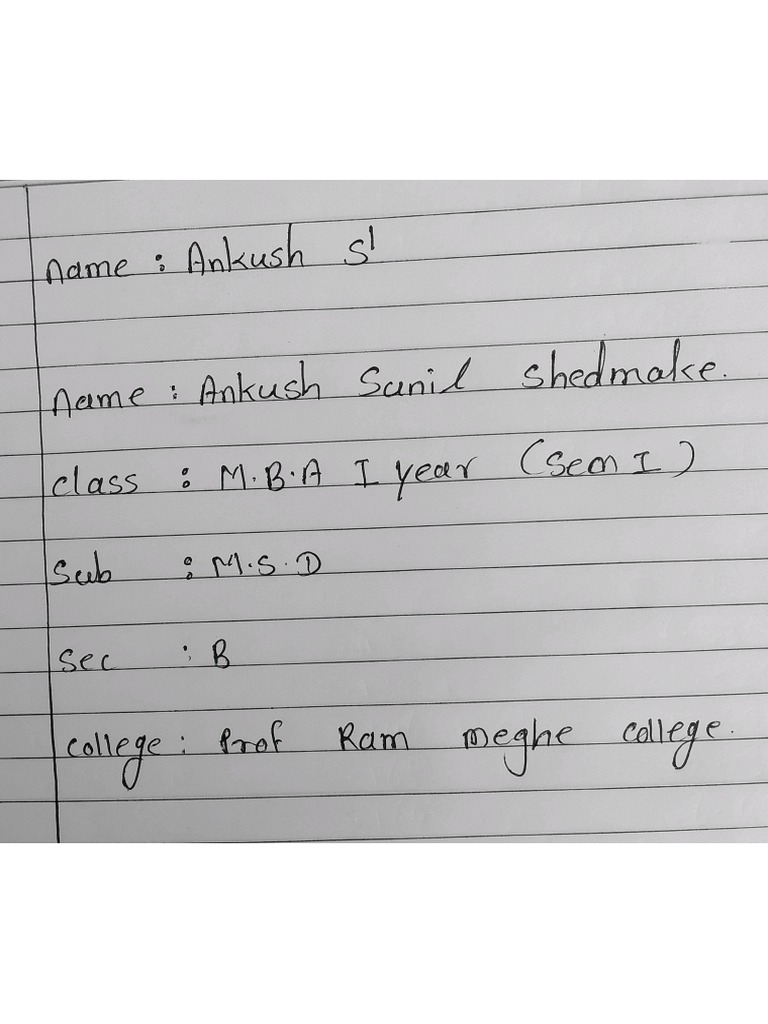 Name : Ankush S
Name : Ankush Sunil Shedmake.
Class : M.B.A I year (Sem I)
Sub : M.S.D
Sec : B
College : Prof Ram Meghe College.